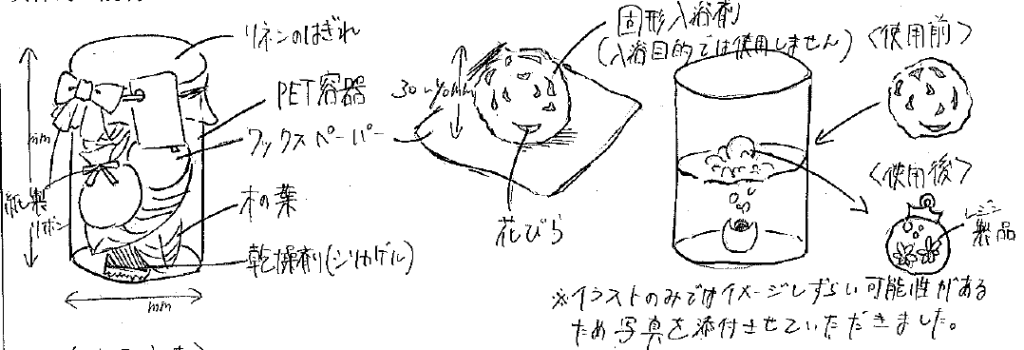 リネンのはぎれ
PET容器
ワックスペーパー
木の葉
乾燥剤(シリカゲル)
mm
mm
紙製
リボン
固形入浴剤
(入浴目的では使用しません)
30〜40mm
花びら
<使用前>
<使用後>
レジン
製品
※イラストのみではイメージしずらい可能性がある
ため写真を添付させていただきました。